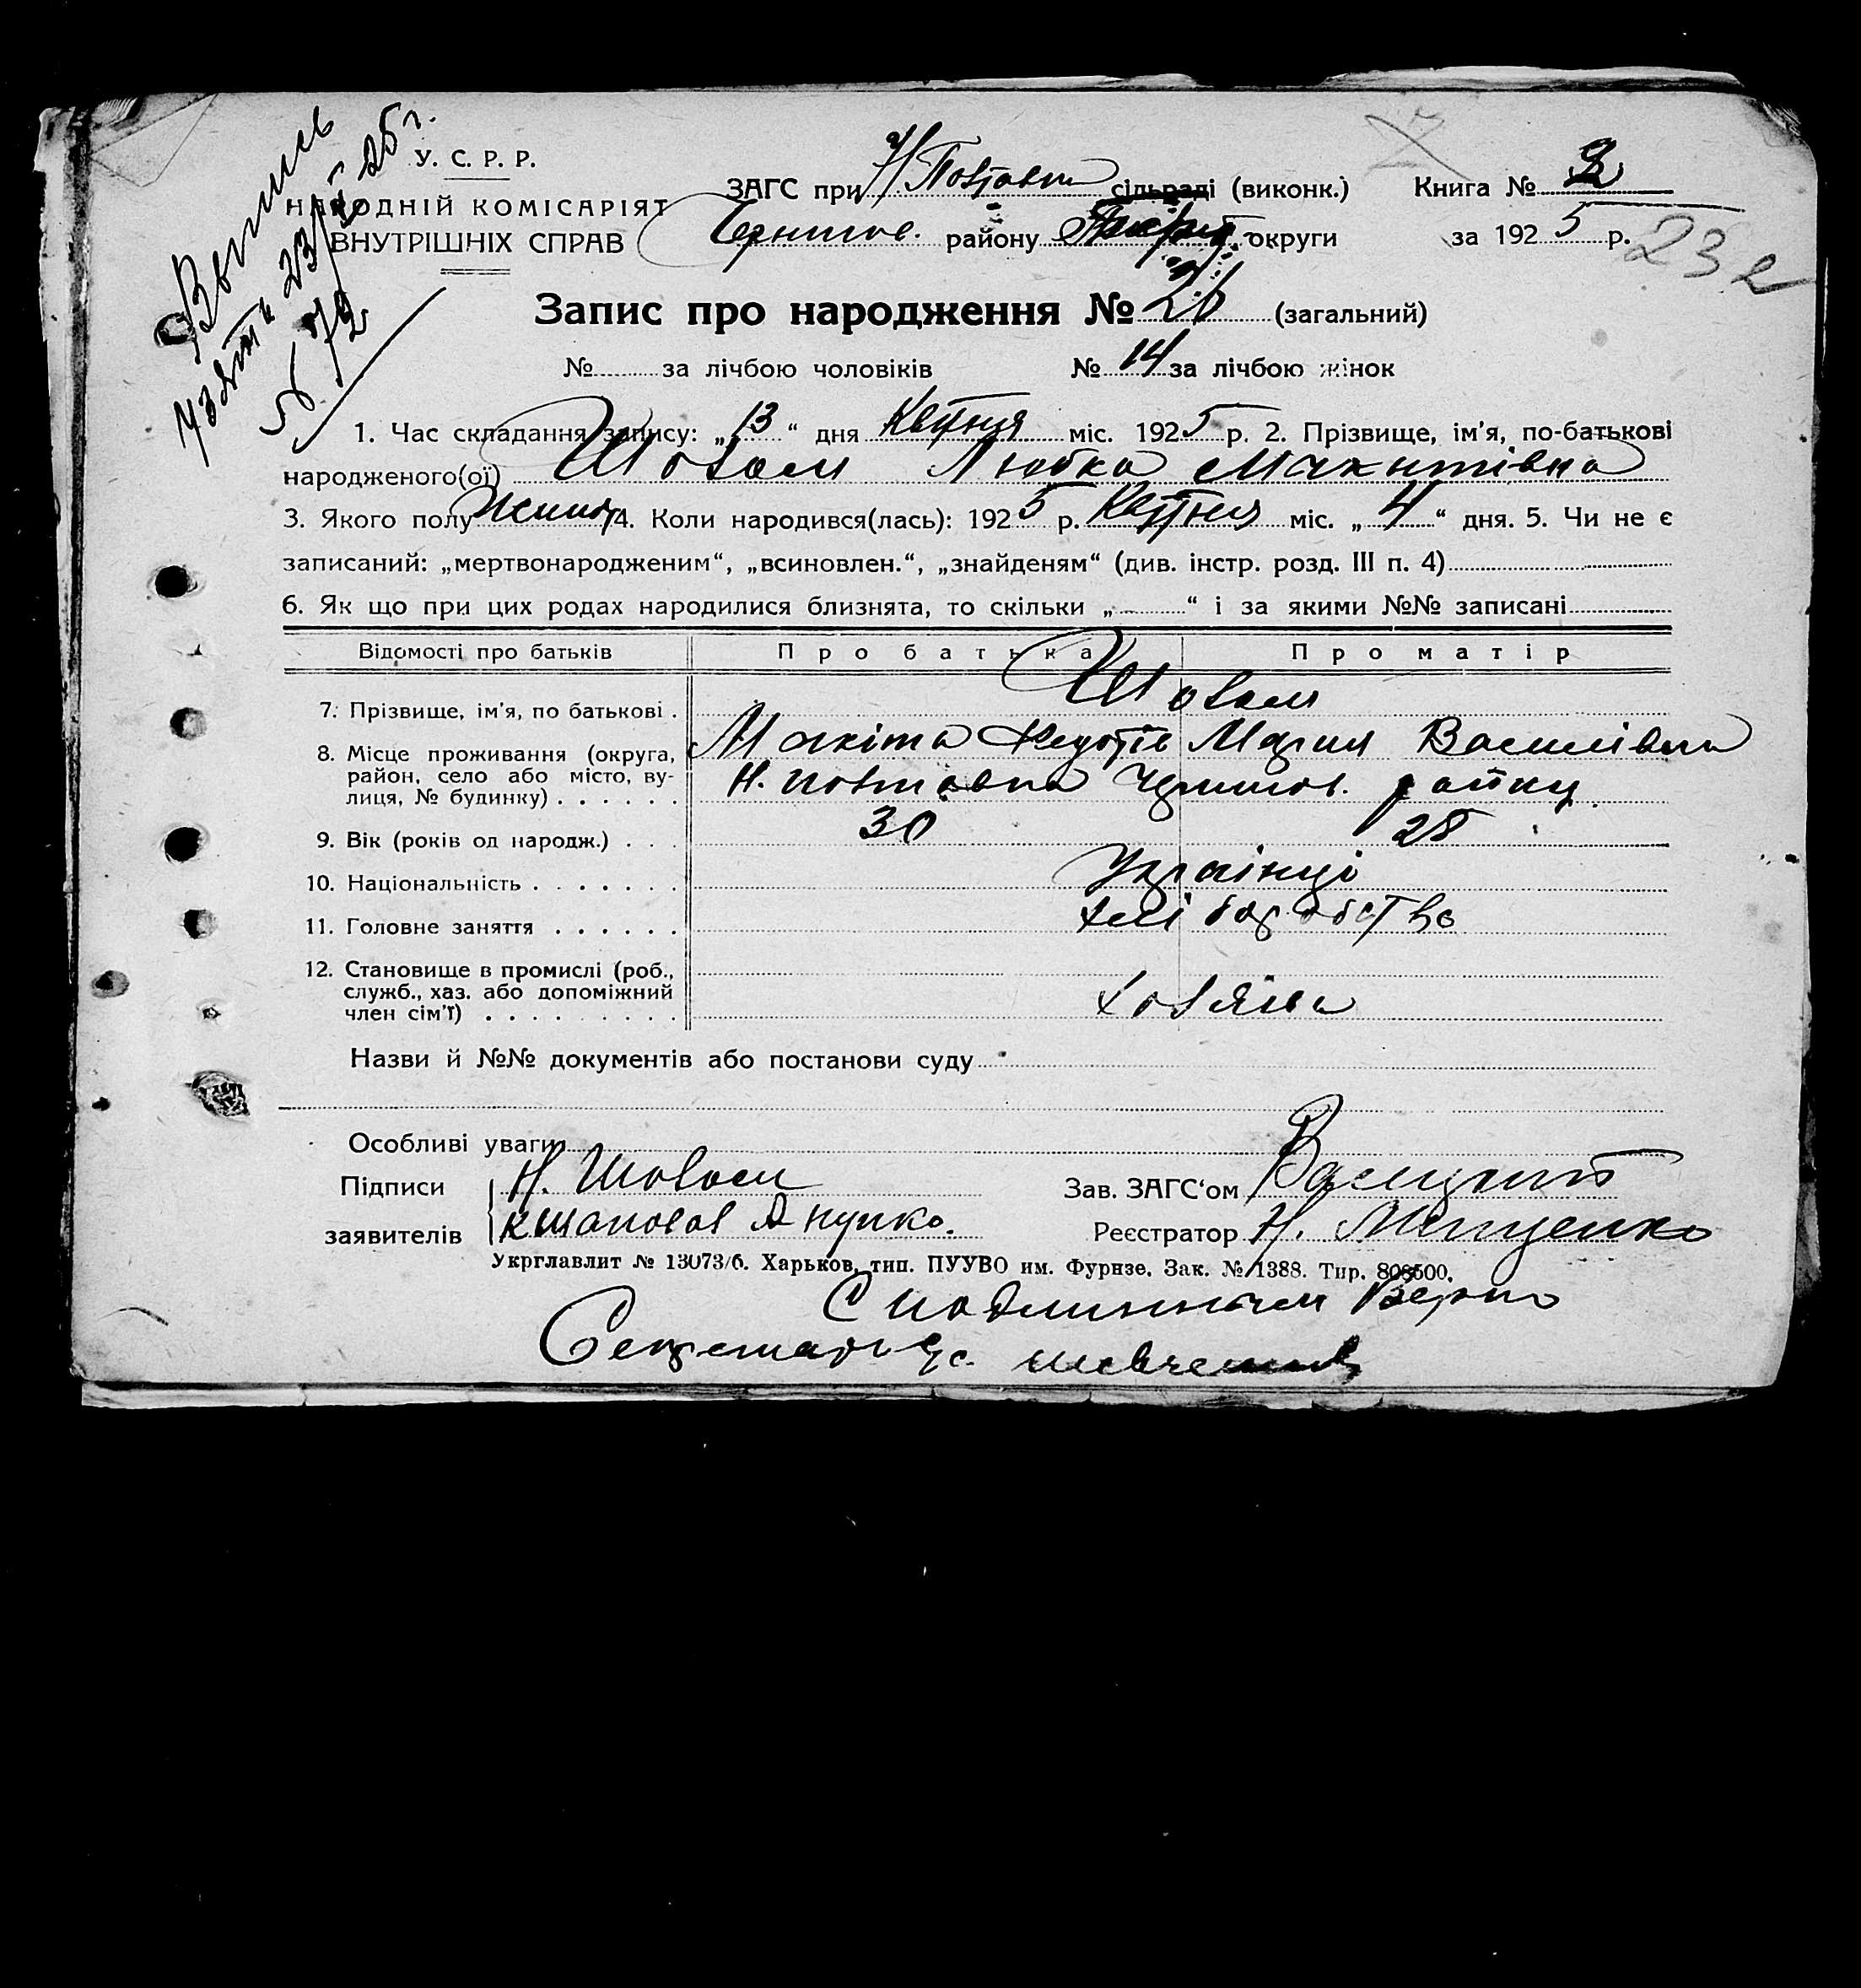 Выпись
узята 23/V 25 г.
№ 72
У. С. Р. Р.
НАРОДНІЙ КОМІСАРІЯТ
ВНУТРІШНІХ СПРАВ
ЗАГС при Н Повтавки сільраді (виконк.) Книга № 2
Чернигов. району округи за 1925 р.
23
Запис про народження № 26 (загальний)
№ за лічбою чоловіків № 14 за лічбою жінок
1. Час складання запису: „13“ дня Квітня міс. 1925 р. 2. Прізвище, ім’я, по-батькові
народженого(ої) Шовам Любка Макитівна
3. Якого полу жиноч 4. Коли народився(лась): 1925 р. Квітня міс. „4“ дня. 5. Чи не є
записаний: „мертвонародженим“, „всиновлен.“, „знайденям“ (див. інстр. розд. III п. 4)
6. Як що при цих родах народилися близнята, то скільки „ “ і за якими №№ записані
Відомості про батьків Про батька Про матір
7. Прізвище, ім’я, по батькові . Шовам
8. Місце проживання (округа, Макіта Мария Василівна
район, село або місто, ву-
лиця, № будинку) . . . . . . Н. Повтавка Чернигов. району
9. Вік (років од народж.) . . . 30 28
10. Національність . . . . . . . Українці
11. Головне заняття . . . . . . хліборобство
12. Становище в промислі (роб.,
служб., хаз. або допоміжний
член сім’ї) . . . . . . . . . хозяїва
Назви й №№ документів або постанови суду
Особливі уваги
Підписи Н. Шовам Зав. ЗАГС‘ом
заявителів Реєстратор Н. Мищенко
Укрглавлит № 13073/6. Харьков, тип. ПУУВО им. Фурнзе. Зак. № 1388. Тир. 808500.
С подлинным Верно
Секретарь